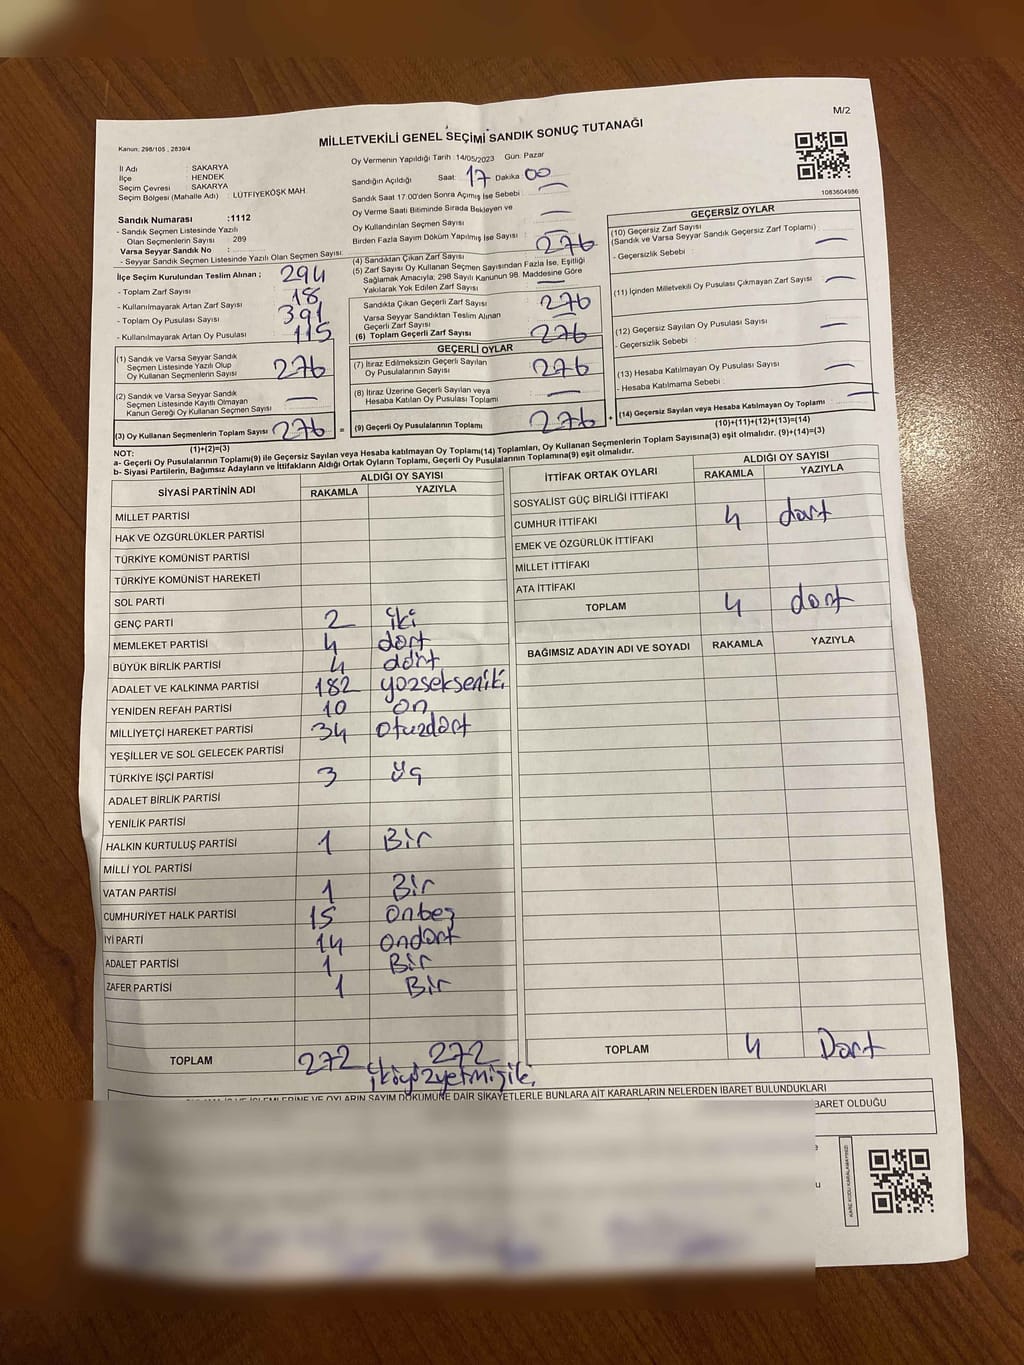 M/2
MİLLETVEKİLİ GENEL SEÇİMİ SANDIK SONUÇ TUTANAĞI
Kanun: 298/105 , 2839/4
İl Adı : SAKARYA
İlçe : HENDEK
Seçim Çevresi : SAKARYA
Seçim Bölgesi (Mahalle Adı) : LÜTFİYEKÖŞK MAH.
Sandık Numarası :1112
- Sandık Seçmen Listesinde Yazılı
Olan Seçmenlerin Sayısı : 289
Varsa Seyyar Sandık No :
- Seyyar Sandık Seçmen Listesinde Yazılı Olan Seçmen Sayısı:
İlçe Seçim Kurulundan Teslim Alınan ;
- Toplam Zarf Sayısı : 294
- Kullanılmayarak Artan Zarf Sayısı : 18
- Toplam Oy Pusulası Sayısı : 391
- Kullanılmayarak Artan Oy Pusulası : 115
(1) Sandık ve Varsa Seyyar Sandık
Seçmen Listesinde Yazılı Olup
Oy Kullanan Seçmenlerin Sayısı : 276
(2) Sandık ve Varsa Seyyar Sandık
Seçmen Listesinde Kayıtlı Olmayan
Kanun Gereği Oy Kullanan Seçmen Sayısı : —
(3) Oy Kullanan Seçmenlerin Toplam Sayısı : 276
(1)+(2)=(3)
Oy Vermenin Yapıldığı Tarih :14/05/2023 Gün: Pazar
Sandığın Açıldığı Saat: 17 Dakika 00
Sandık Saat 17:00'den Sonra Açımış İse Sebebi : —
Oy Verme Saati Bitiminde Sırada Bekleyen ve
Oy Kullandırılan Seçmen Sayısı : —
Birden Fazla Sayım Döküm Yapılmış İse Sayısı : —
(4) Sandıktan Çıkan Zarf Sayısı : 276
(5) Zarf Sayısı Oy Kullanan Seçmen Sayısından Fazla İse, Eşitliği
Sağlamak Amacıyla; 298 Sayılı Kanunun 98. Maddesine Göre
Yakılarak Yok Edilen Zarf Sayısı : —
Sandıkta Çıkan Geçerli Zarf Sayısı : 276
Varsa Seyyar Sandıktan Teslim Alınan
Geçerli Zarf Sayısı : —
(6) Toplam Geçerli Zarf Sayısı : 276
GEÇERLİ OYLAR
(7) İtiraz Edilmeksizin Geçerli Sayılan
Oy Pusulalarının Sayısı : 276
(8) İtiraz Üzerine Geçerli Sayılan veya
Hesaba Katılan Oy Pusulası Toplamı : —
= (9) Geçerli Oy Pusulalarının Toplamı : 276 +
1083604986
GEÇERSİZ OYLAR
(10) Geçersiz Zarf Sayısı
(Sandık ve Varsa Seyyar Sandık Geçersiz Zarf Toplamı) :
- Geçersizlik Sebebi : —
(11) İçinden Milletvekili Oy Pusulası Çıkmayan Zarf Sayısı : —
(12) Geçersiz Sayılan Oy Pusulası Sayısı : —
- Geçersizlik Sebebi :
(13) Hesaba Katılmayan Oy Pusulası Sayısı : —
- Hesaba Katılmama Sebebi : —
(14) Geçersiz Sayılan veya Hesaba Katılmayan Oy Toplamı : —
(10)+(11)+(12)+(13)=(14)
NOT:
a- Geçerli Oy Pusulalarının Toplamı(9) ile Geçersiz Sayılan veya Hesaba katılmayan Oy Toplamı(14) Toplamları, Oy Kullanan Seçmenlerin Toplam Sayısına(3) eşit olmalıdır. (9)+(14)=(3)
b- Siyasi Partilerin, Bağımsız Adayların ve İttifakların Aldığı Ortak Oyların Toplamı, Geçerli Oy Pusulalarının Toplamına(9) eşit olmalıdır.
SİYASİ PARTİNİN ADI ALDIĞI OY SAYISI
RAKAMLA YAZIYLA
MİLLET PARTİSİ
HAK VE ÖZGÜRLÜKLER PARTİSİ
TÜRKİYE KOMÜNİST PARTİSİ
TÜRKİYE KOMÜNİST HAREKETİ
SOL PARTİ
GENÇ PARTİ 2 iki
MEMLEKET PARTİSİ 4 dört
BÜYÜK BİRLİK PARTİSİ 4 dört
ADALET VE KALKINMA PARTİSİ 182 yözsekseniki
YENİDEN REFAH PARTİSİ 10 on
MİLLİYETÇİ HAREKET PARTİSİ 34 otuzdört
YEŞİLLER VE SOL GELECEK PARTİSİ
TÜRKİYE İŞÇİ PARTİSİ 3 üç
ADALET BİRLİK PARTİSİ
YENİLİK PARTİSİ
HALKIN KURTULUŞ PARTİSİ 1 Bir
MİLLİ YOL PARTİSİ
VATAN PARTİSİ 1 Bir
CUMHURİYET HALK PARTİSİ 15 onbeş
İYİ PARTİ 14 ondört
ADALET PARTİSİ 1 Bir
ZAFER PARTİSİ 1 Bir
TOPLAM 272 272
ikiyüzyetmişiki
İTTİFAK ORTAK OYLARI ALDIĞI OY SAYISI
RAKAMLA YAZIYLA
SOSYALİST GÜÇ BİRLİĞİ İTTİFAKI
CUMHUR İTTİFAKI 4 dört
EMEK VE ÖZGÜRLÜK İTTİFAKI
MİLLET İTTİFAKI
ATA İTTİFAKI
TOPLAM 4 dört
BAĞIMSIZ ADAYIN ADI VE SOYADI RAKAMLA YAZIYLA
TOPLAM 4 Dört
İŞLEMLERİNE VE OYLARIN SAYIM DÖKÜMÜNE DAİR ŞİKAYETLERLE BUNLARA AİT KARARLARIN NELERDEN İBARET BULUNDUKLARI
BARET OLDUĞU
KARE KODU KARALAMAYINIZ!